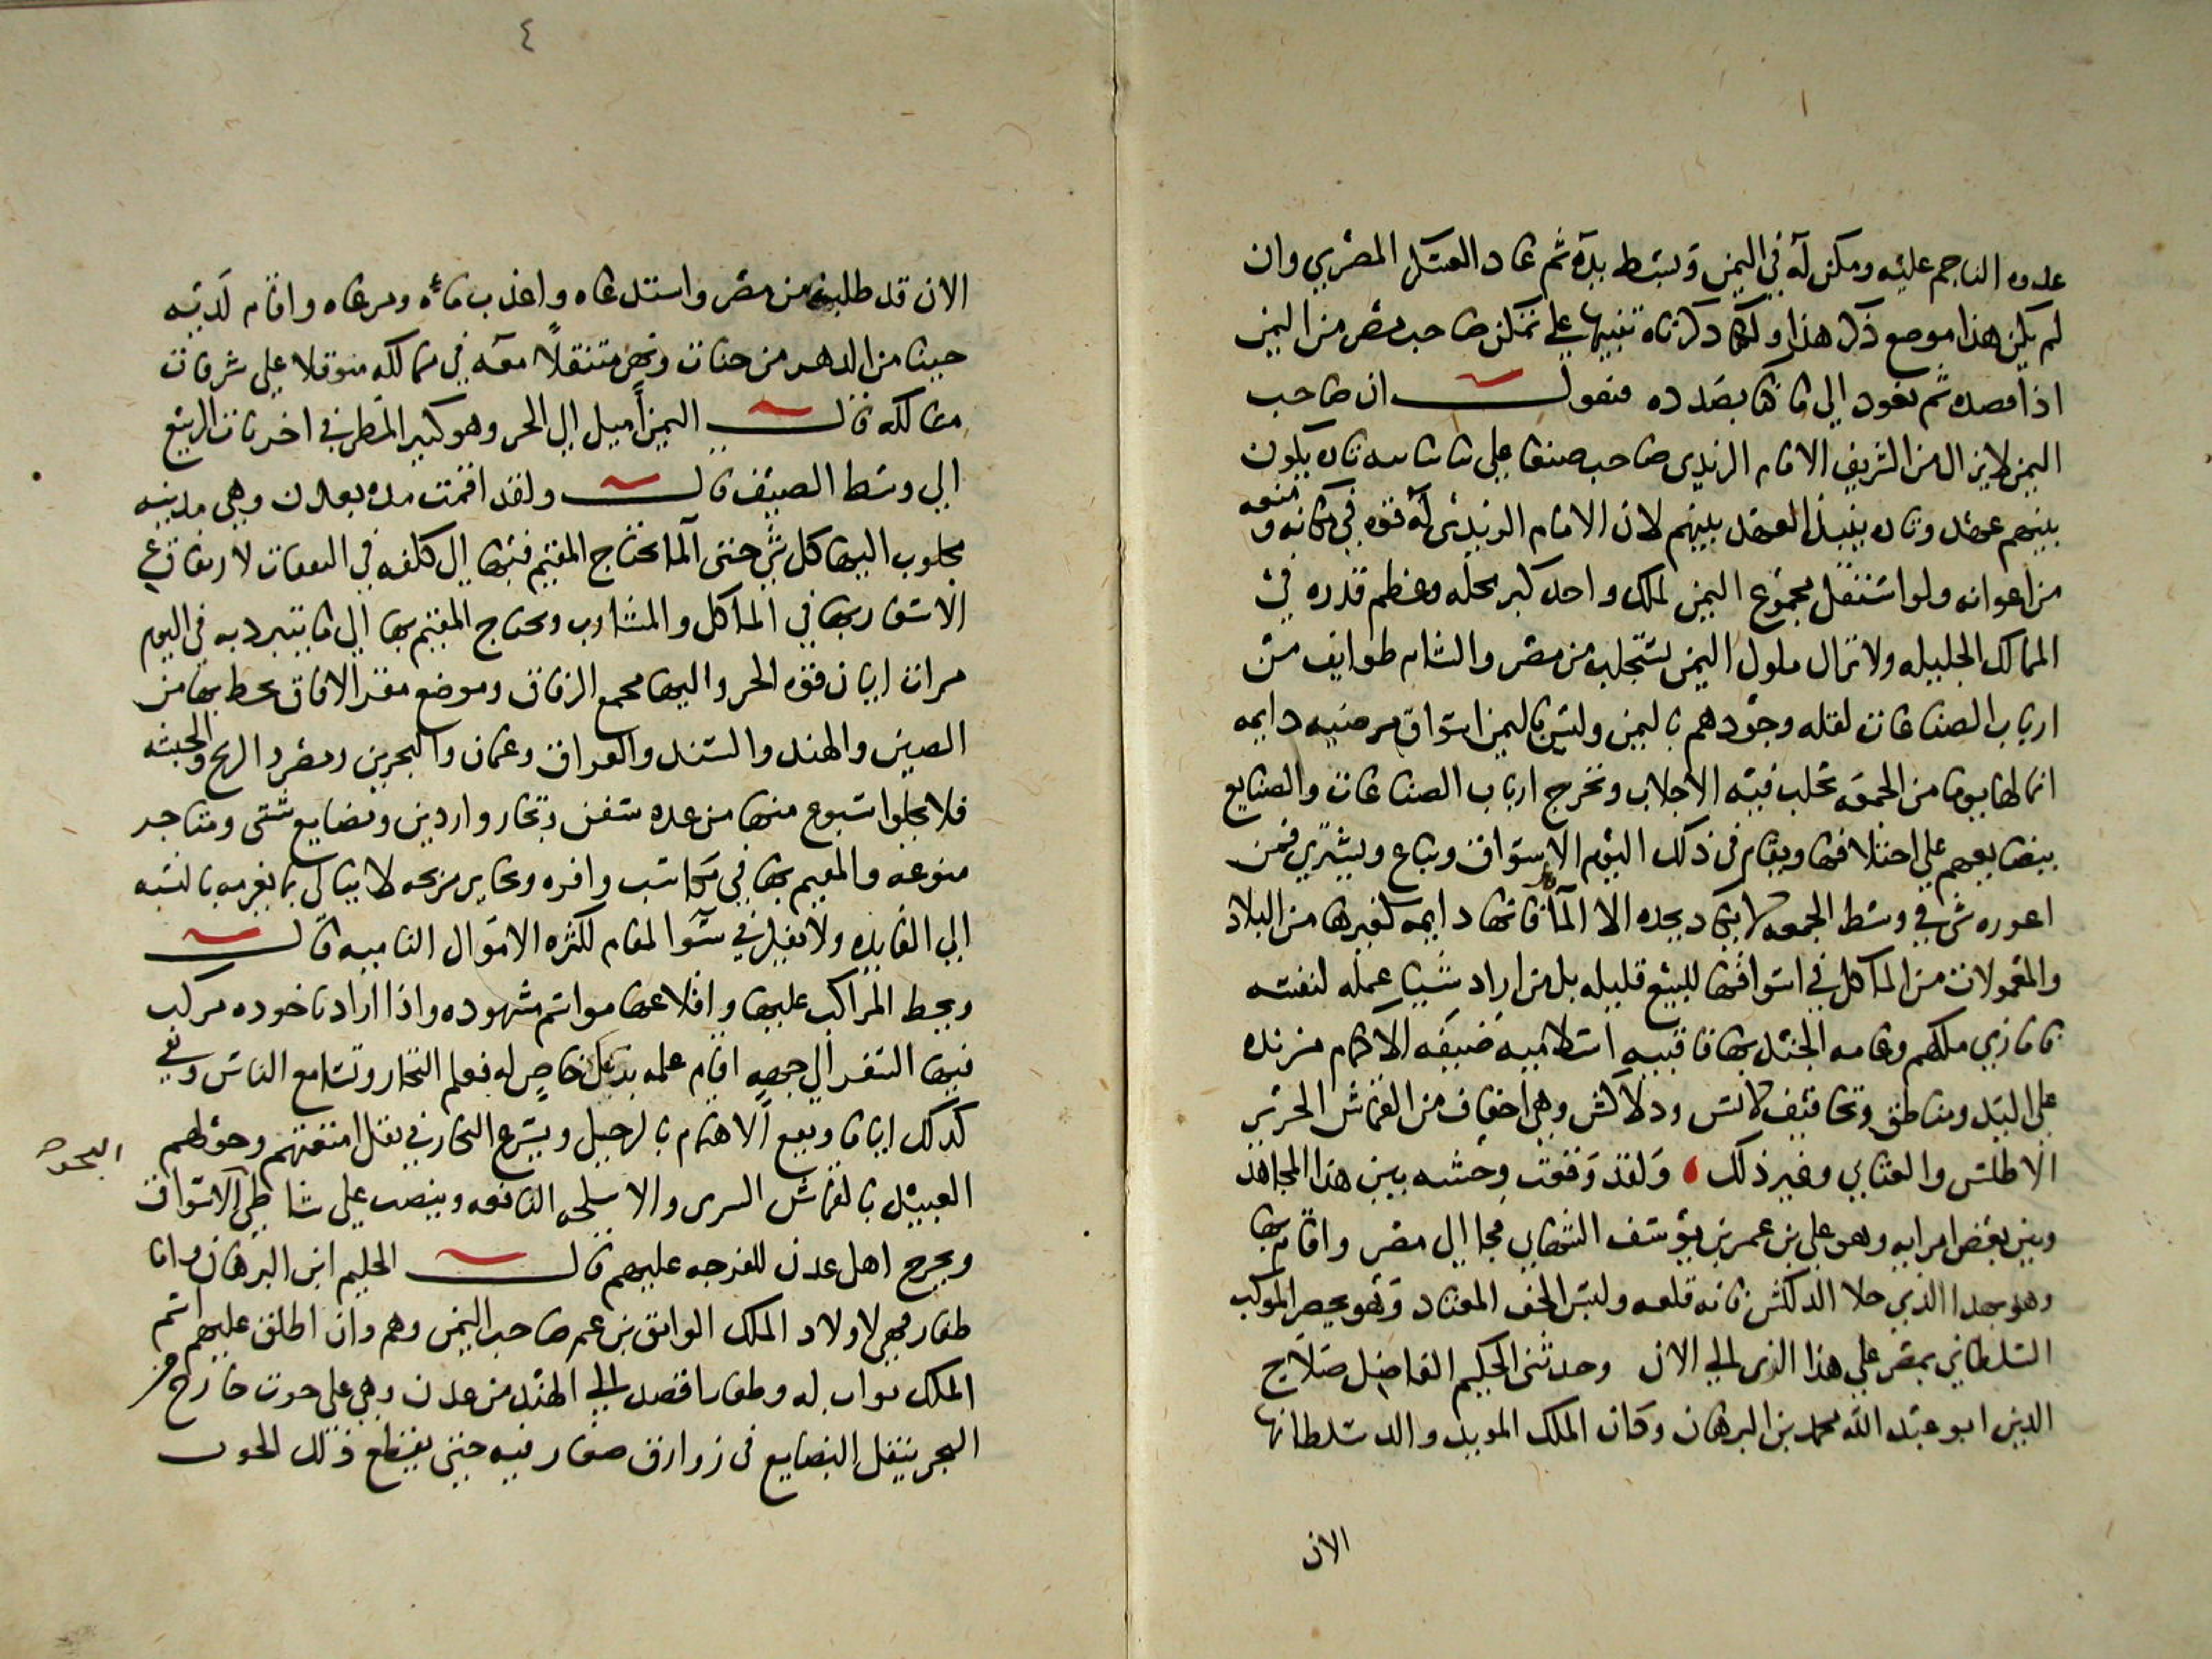 عدوه الناجم عليه ومكن له في اليمن وبسط يده ثم عاد العسكر المصري وان
لم يكن هذا موضع ذكر هذا ولكنا ذكرناه تنبيها على تمكن صاحب مصر من اليمن
اذا قصده ثم نعود الي ما كنا بصدده فنقول ان صاحب
اليمن لا يزال من الشريف الامام الزيدي صاحب صنعا علي تاره يكون
بينهم عهد وتاره ينبذ العهد بينهم لان الامام الزيدي له قوه في مكانه ومنعه
من اعوانه ولو استقل مجموع اليمن لملك واحد كبر محله وعظم قدره في
الممالك الجليله ولا تزال ملوك اليمن تستجلب من مصر والشام طوايف من
ارباب الصناعات لقله وجودهم باليمن وليس باليمن اسواق مرضيه دايمه
انما لها يوما من الجمعه تجلب فيه الاجلاب وتخرج ارباب الصناعات والصنايع
ببضايعهم علي اختلافها ويقام في ذلك اليوم الاسواق ويباع ويشتري فمن
اعوزه شي في وسط الجمعه لا يكاد يجده الا المآكل فانها دايمه كغيرها من البلاد
والمعمولات من المآكل في اسواقها للبيع قليله بل من اراد شييا عمله لنفسه
فاما زي ملكهم وعامه الجند بها فاقبيه اسلاميه ضيقه الاكمام مزنده
علي اليد ومناطق وتخافيف لانس ودلاكش وهي اخفاف من القماش الحرير
الاطلس والعتابي وغير ذلك ولقد وقعت وحشه بين هذا المجاهد
وبين بعض امرايه وهو علي بن عمر بن يوسف الشهابي فجا الي مصر واقام بها
وهو بهذا الزي خلا الدلكش فانه قلعه ولبس الخف المعتاد وهو يحضر الموكب
السلطاني بمصر علي هذا الزي الي الان وحدثني الحكيم الفاضل صلاح
الدين ابو عبد الله محمد بن البرهان وكان الملك المويد والد سلطانها
الان
٤
الان قد طلبه من مصر واستدعاه واعذب ماءه ومرعاه واقام لديه
حينا من الدهر من جنات ونهر متنقلا معه في ممالكه متوقلا علي شرفات
مسالكه قال اليمن أميل الي الحر وهو كثير المطر في اخريات الربيع
الي وسط الصيف قال ولقد اقمت مده بعدن وهي مدينه
مجلوب اليها كل شي حتي الما يحتاج المقيم فيها الي كلفه في النفقات لارتفاع
الاسعار بها في المآكل والمشارب ويحتاج المقيم بها الي ما يتبرد به في اليوم
مرات ايان قوه الحر واليها مجمع الرفاق وموضع سفر الافاق يحط بها من
الصين والهند والسند والعراق وعمان والبحرين ومصر والزنج والحبشه
فلا يخلوا اسبوع منها من عده سفن وتجار واردين وبضايع شتى ومتاجر
منوعه والمقيم بها في مكاسب وافره وتجاير مربحه لا يبالي بما يغرمه بالنسبه
الي الفايده ولا يفكر في سوء المقام لكثره الاموال الناميه قال
ويحط المراكب عليها واقلاعها مواسم مشهوده واذا اراد ناخوده مركب
فيها السفر الي جهه اقام علمه برنك خاص له فعلم التجار وتسامع الناس وبقي
كذلك اياما ويقع الاهتمام بالرحيل ويشرع التجار في نقل امتعتهم وحولهم
العبيد بالقماش السري والاسلحه النافعه وينصب علي شاطي الاسواق
البحر
ويخرج اهل عدن للفرجه عليهم قال الحكيم ابن البرهان واما
ظفار فهي لاولاد الملك الواثق بن عم صاحب اليمن وهم وان اطلق عليهم اسم
الملك نواب له وظفار اقصد الي الهند من عدن وهي علي حوت خارج من
البحر ينقل البضايع في زوارق صغار فيه حتي يقطع ذلك الحوت